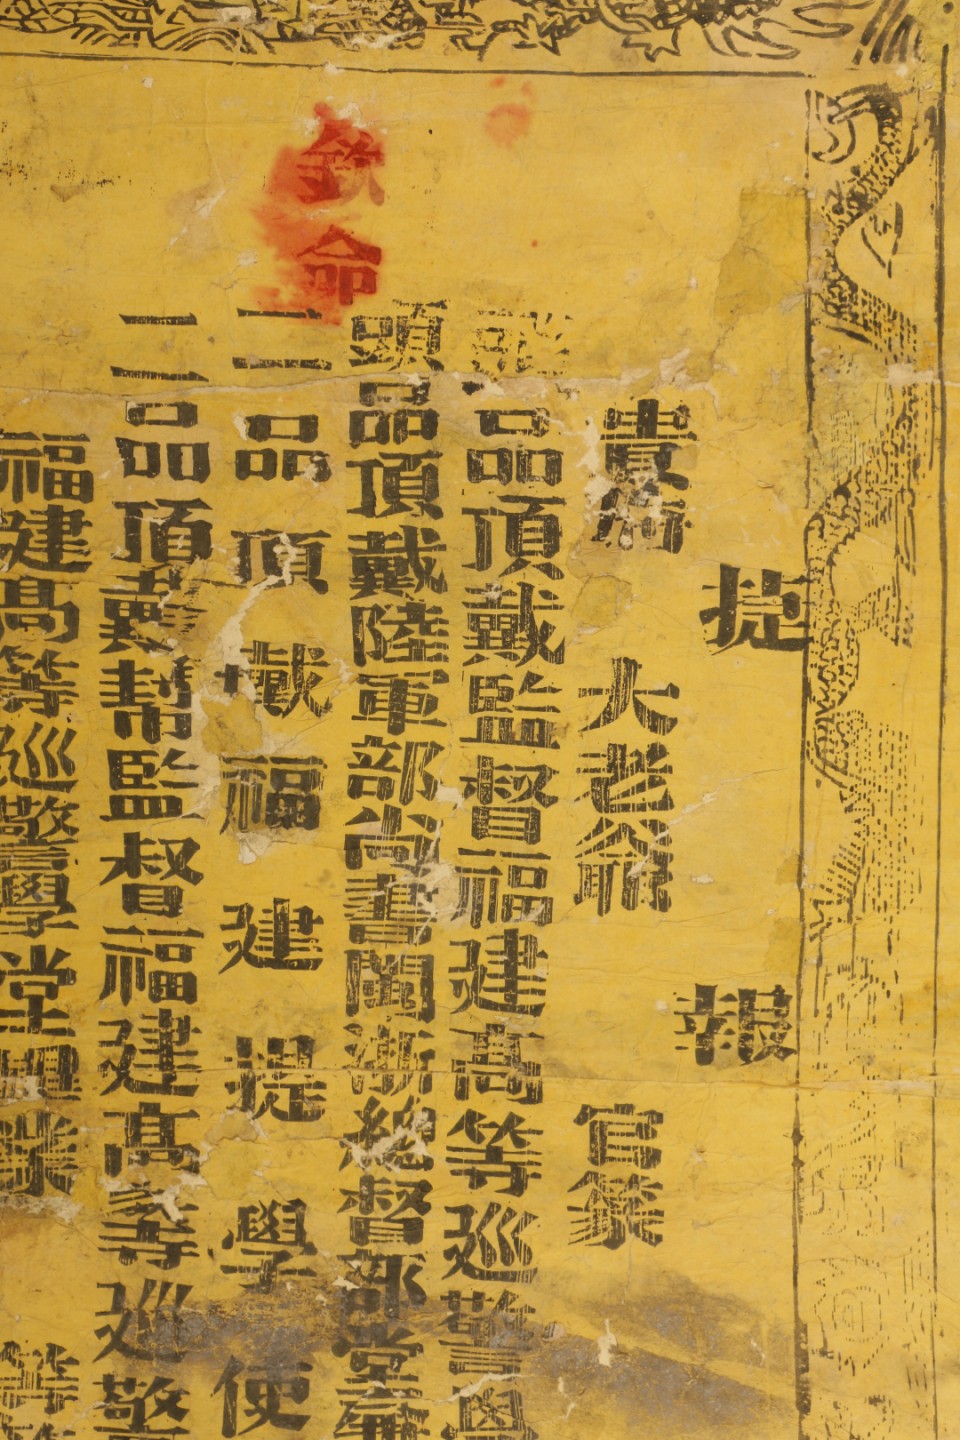 捷報
貴府大老爺官篆
品頂戴監督福建高等巡警學
欽命
頭品頂戴陸軍部尚書閩浙總督部堂
二品頂戴福建提學使
二品頂戴幫監督福建高等巡警
福建高等巡警學堂畢業